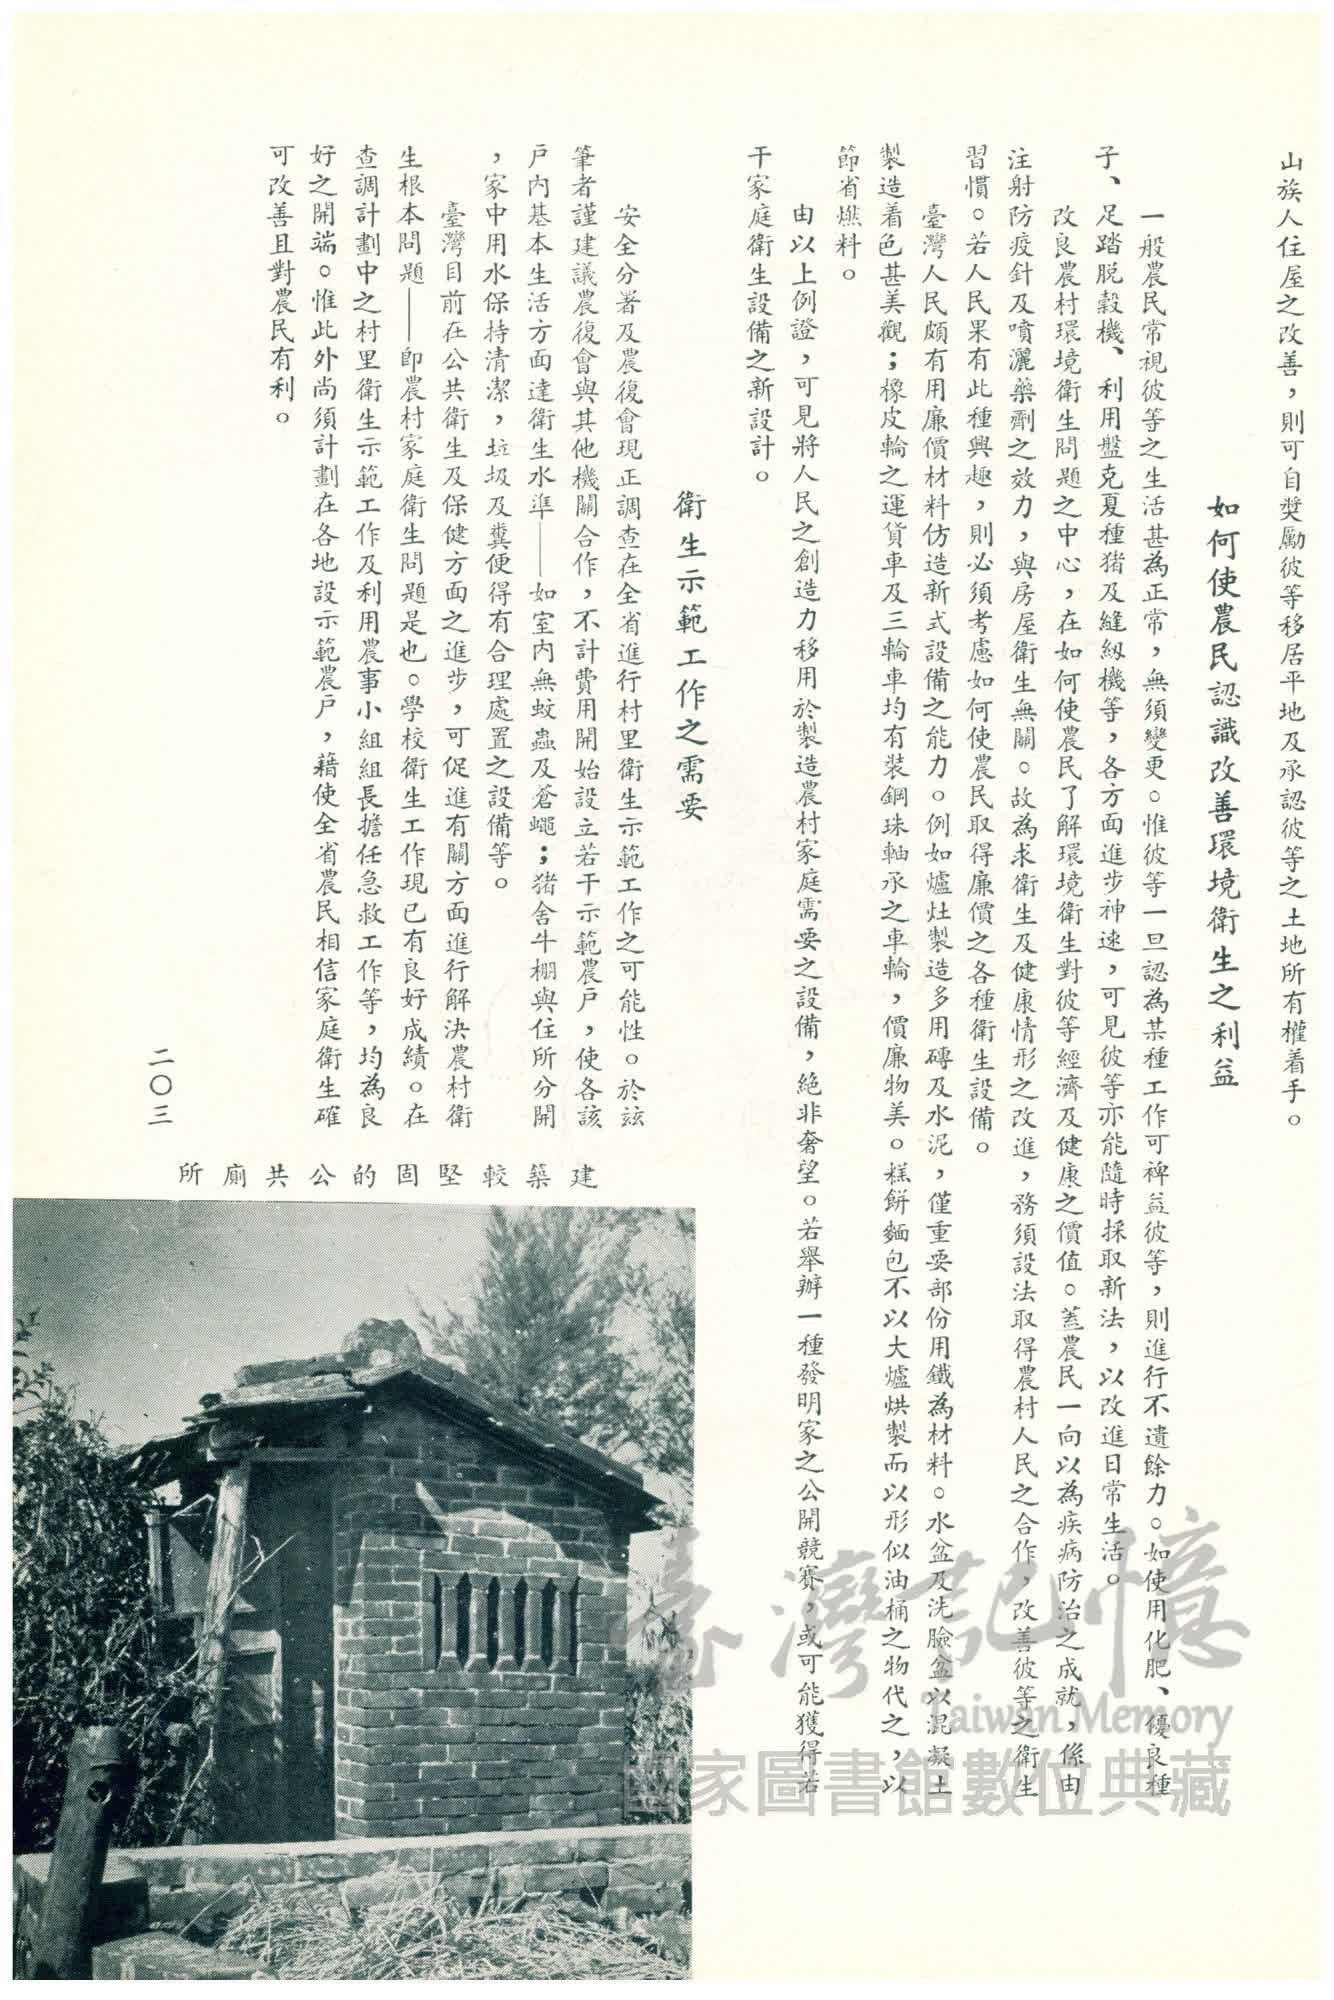 山族人住屋之改善，則可自奬勵彼等移居平地及承認彼等之土地所有權着手。
如何使農民認識改善環境衛生之利益
一般農民常視彼等之生活甚為正常，無須變更。惟彼等一旦認為某種工作可裨益彼等，則進行不遺餘力。如使用化肥、優良種
子、足踏脱穀機、利用盤克夏種猪及縫紉機等，各方面進步神速，可見彼等亦能隨時採取新法，以改進日常生活。
改良農村環境衛生問題之中心，在如何使農民了解環境衛生對彼等經濟及健康之價值。蓋農民一向以為疾病防治之成就，係由
注射防疫針及噴灑藥劑之效力，與房屋衛生無關。故為求衛生及健康情形之改進，務須設法取得農村人民之合作，改善彼等之衛生
習慣。若人民果有此種興趣，則必須考慮如何使農民取得廉價之各種衛生設備。
臺灣人民頗有用廉價材料仿造新式設備之能力。例如爐灶製造多用磚及水泥，僅重要部份用鐵為材料。水盆及洗臉盆以混凝土
製造着色甚美觀；橡皮輪之運貨車及三輪車均有裝鋼珠軸承之車輪，價廉物美。糕餅麵包不以大爐烘製而以形似油桶之物代之，以
節省燃料。
由以上例證，可見將人民之創造力移用於製造農村家庭需要之設備，絶非奢望。若舉辦一種發明家之公開競賽，或可能獲得若
干家庭衛生設備之新設計。
衛生示範工作之需要
安全分署及農復會現正調查在全省進行村里衛生示範工作之可能性。於玆
筆者謹建議農復會與其他機關合作，不計費用開始設立若干示範農戶，使各該
戶内基本生活方面達衛生水準——如室内無蚊蟲及蒼蠅；猪舍牛棚與住所分開
，家中用水保持清潔，垃圾及糞便得有合理處置之設備等。
臺灣目前在公共衛生及保健方面之進步，可促進有關方面進行解決農村衛
生根本問題——卽農村家庭衛生問題是也。學校衛生工作現已有良好成績。在
查調計劃中之村里衛生示範工作及利用農事小組組長擔任急救工作等，均為良
好之開端。惟此外尚須計劃在各地設示範農戶，藉使全省農民相信家庭衛生確
可改善且對農民有利。
二〇三
建築較堅固的公共廁所
臺灣記憶
Taiwan Memory
國家圖書館數位典藏